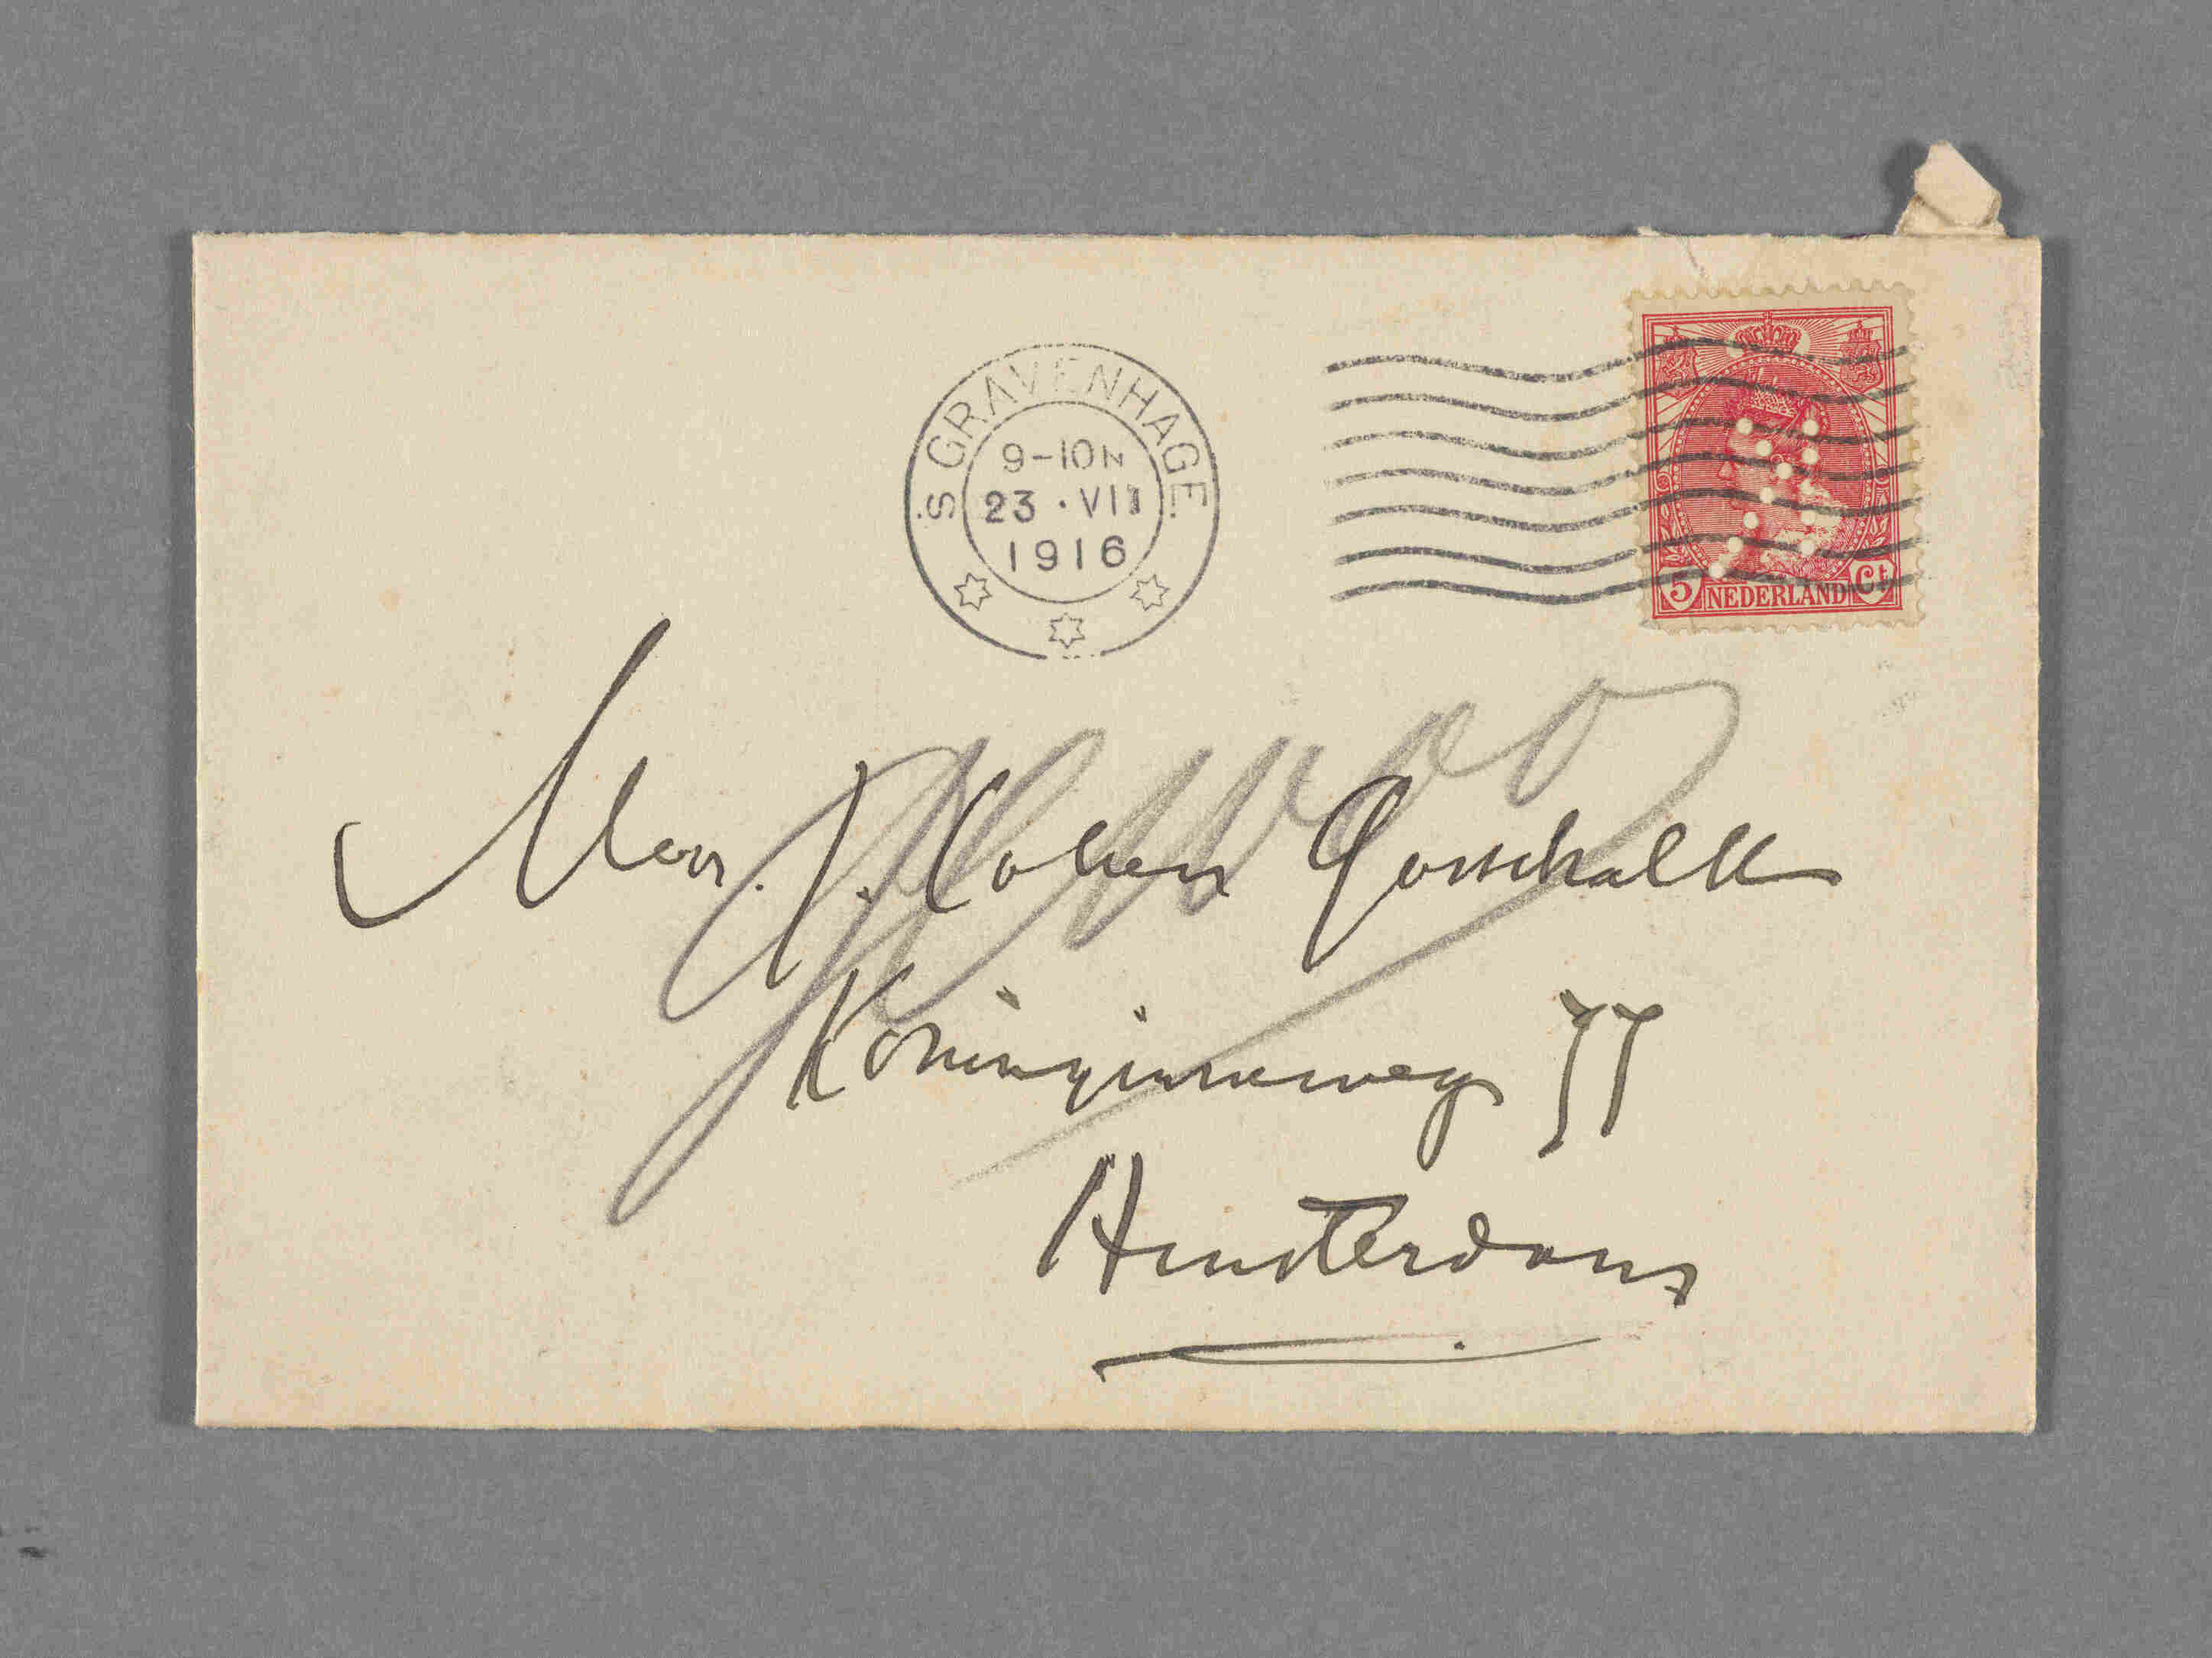 'S GRAVENHAGE.
9-10N
23 · VII
1916
5 NEDERLAND Ct
Mevr. J. Cohen Gosschalk
Koninginneweg 77
Amsterdam